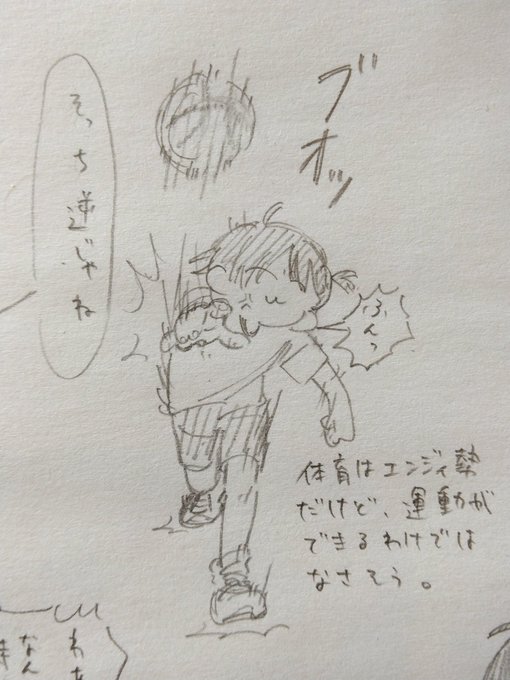 ブオッ
そっち逆じゃね
ふんっ
体育はエンジョイ勢
だけど、運動が
できるわけでは
なさそう。
わ
なん